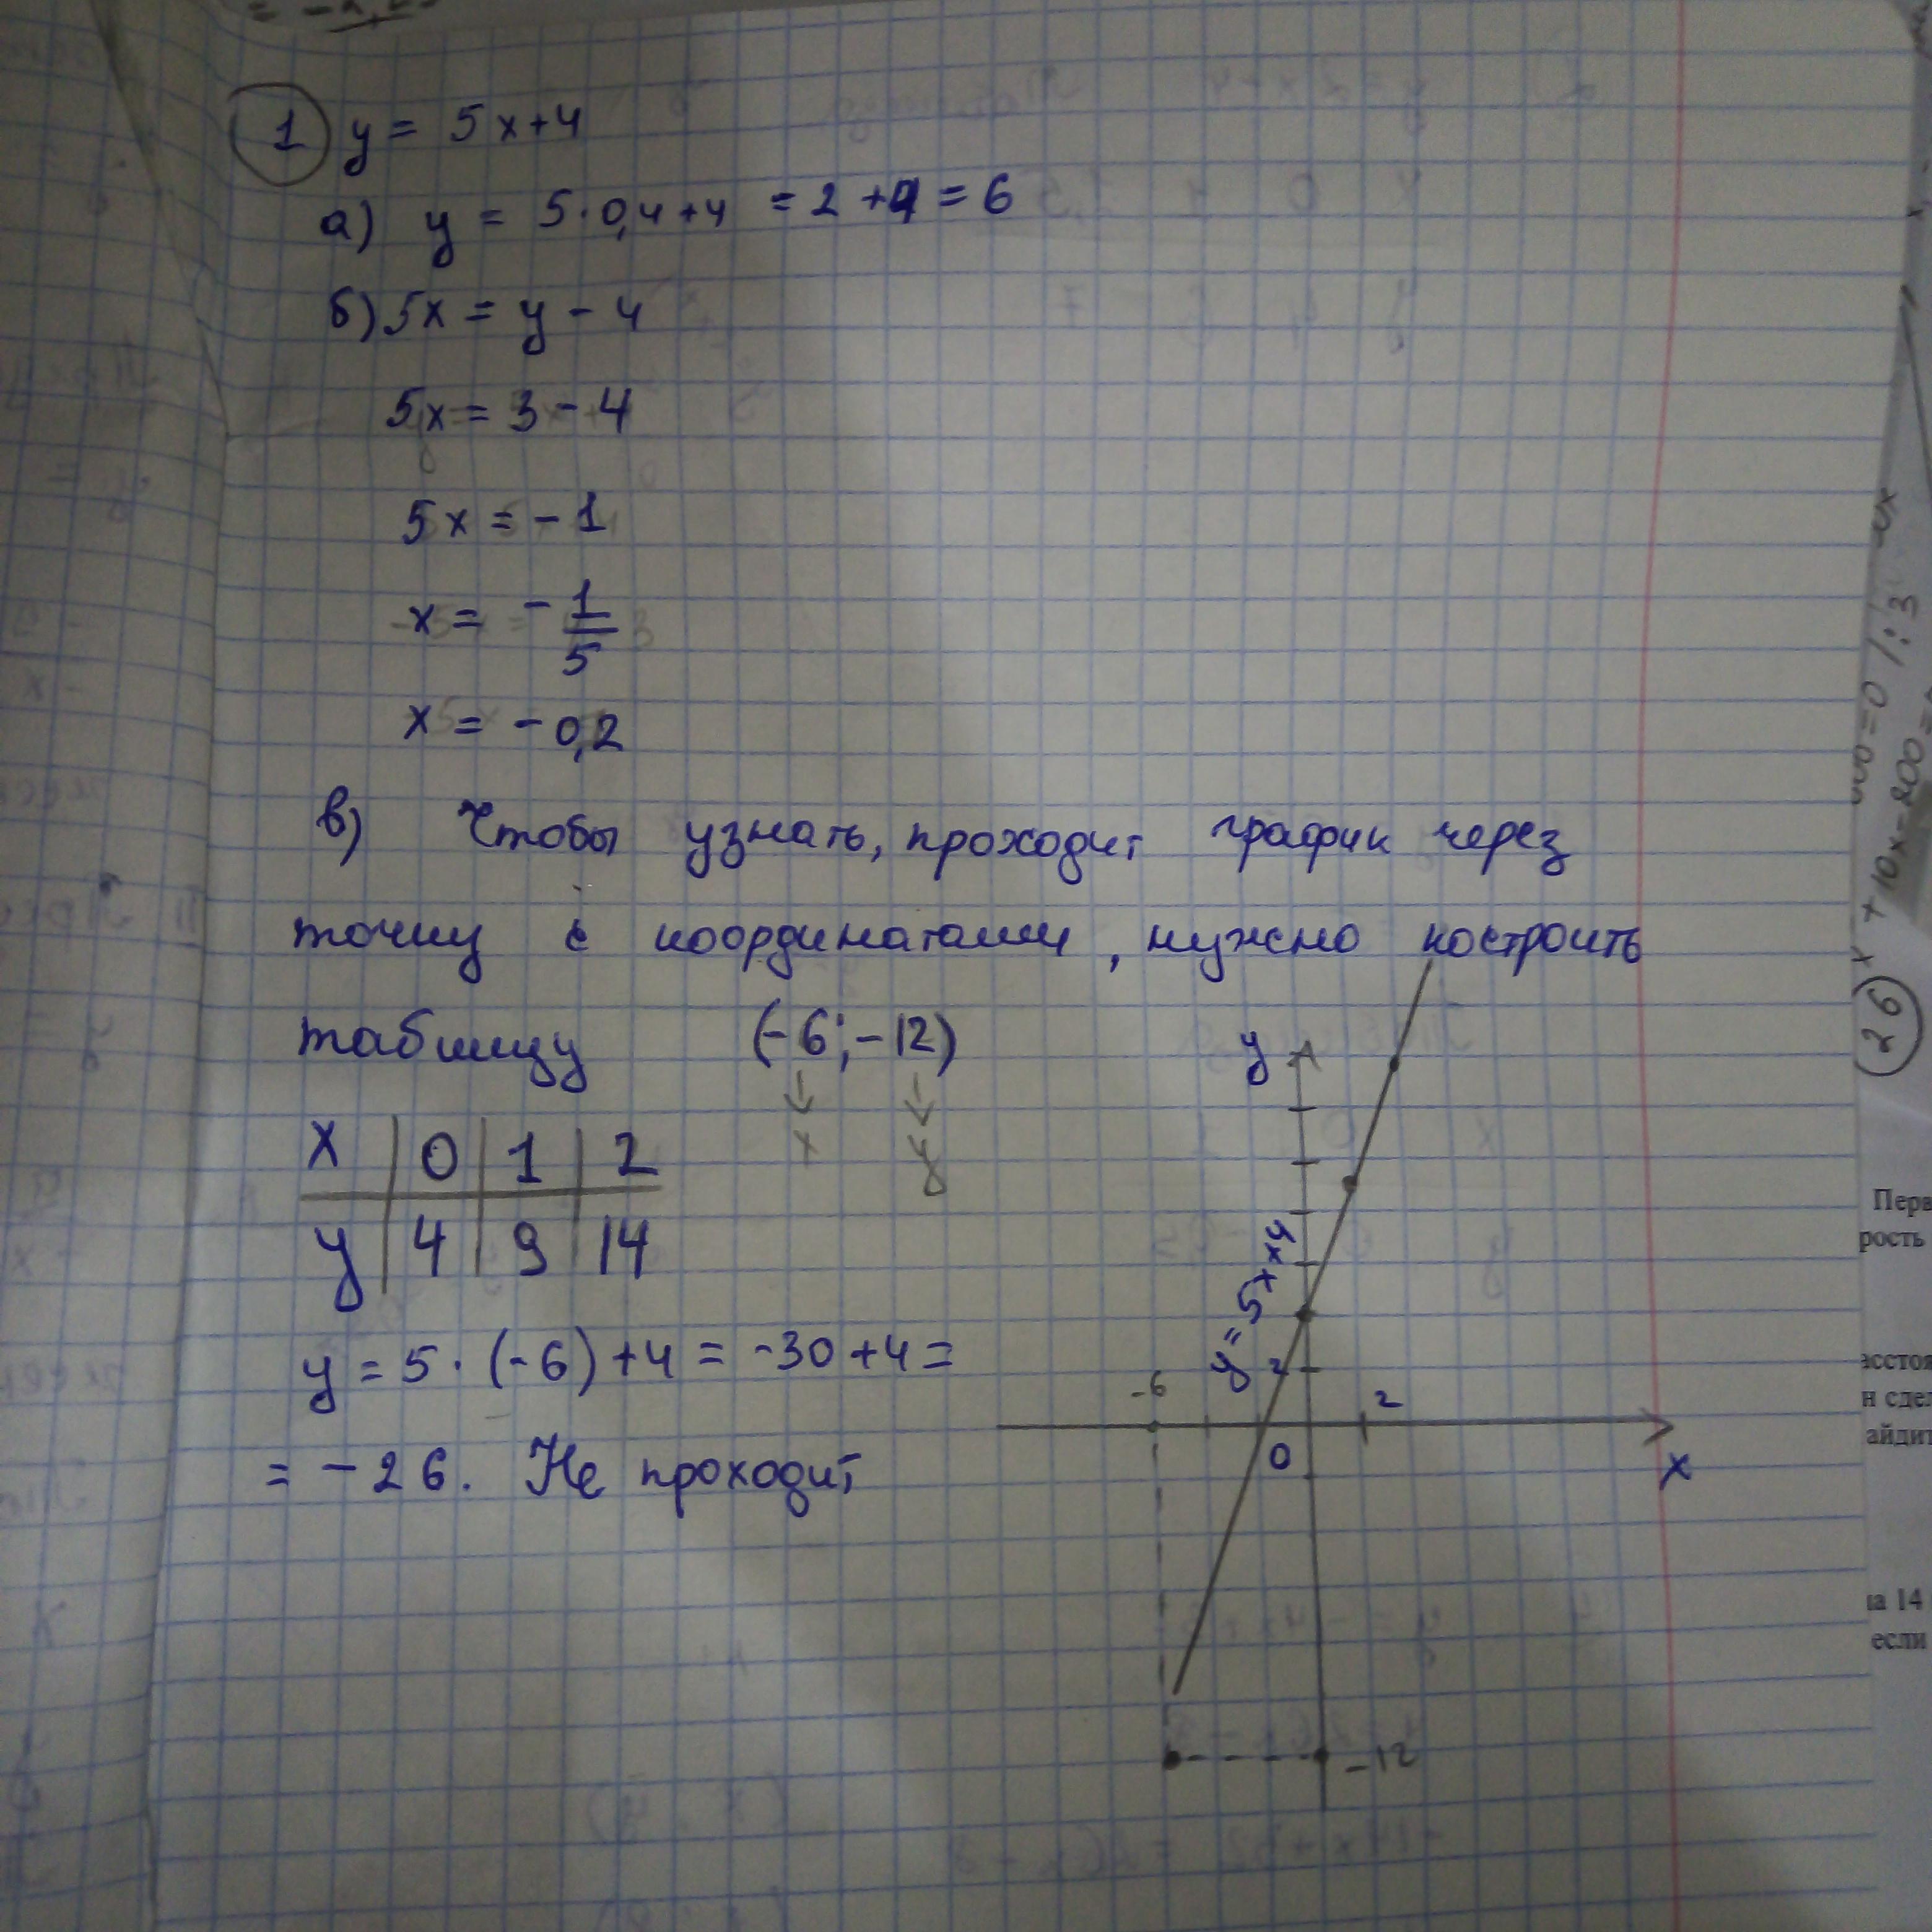 1 y = 5x+4
а) y = 5·0,4+4 = 2+4 = 6
б) 5x = y - 4
5x = 3 - 4
5x = -1
x = - 1/5
x = -0,2
в) Чтобы узнать, проходит график через
точку с координатами, нужно построить
таблицу (-6; -12)
x y
x 0 1 2
y 4 9 14
y = 5·(-6)+4 = -30+4 =
= -26. Не проходит
y
y = 5x+4
2
-6
2
0
x
-12
26
x + 10x - 200 =
=0 /:3
Перв
рость
н сдел
айдит
на 14
если